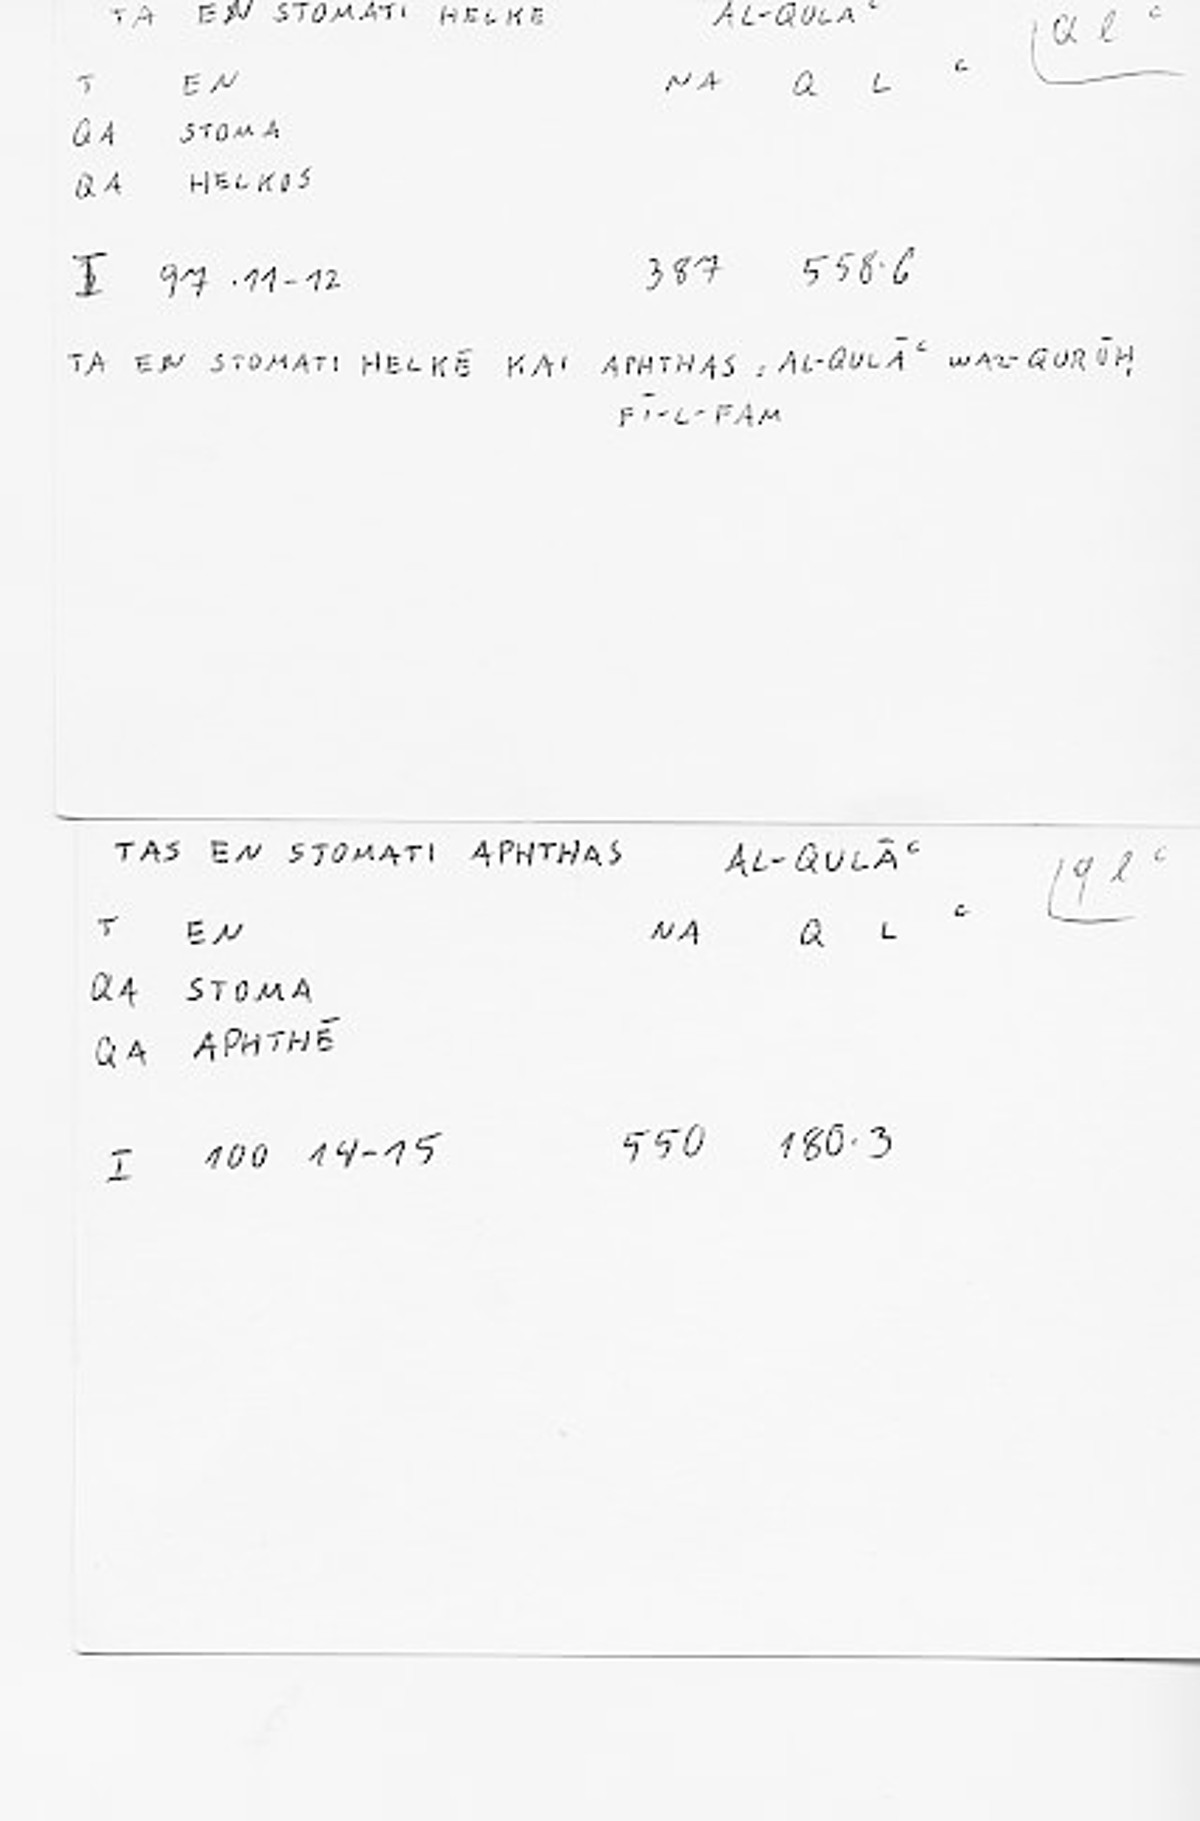 TA EN STOMATI HELKE AL-QULAᶜ qlᶜ
T EN NA Q L ᶜ
QA STOMA
QA HELKOS
I 97 .11-12 387 558.6
TA EN STOMATI HELKĒ KAI APHTHAS : AL-QULĀᶜ WAL-QURŪḤ
FĪ-L-FAM
TAS EN STOMATI APHTHAS AL-QULĀᶜ qlᶜ
T EN NA Q L ᶜ
QA STOMA
QA APHTHĒ
I 100 14-15 550 180.3